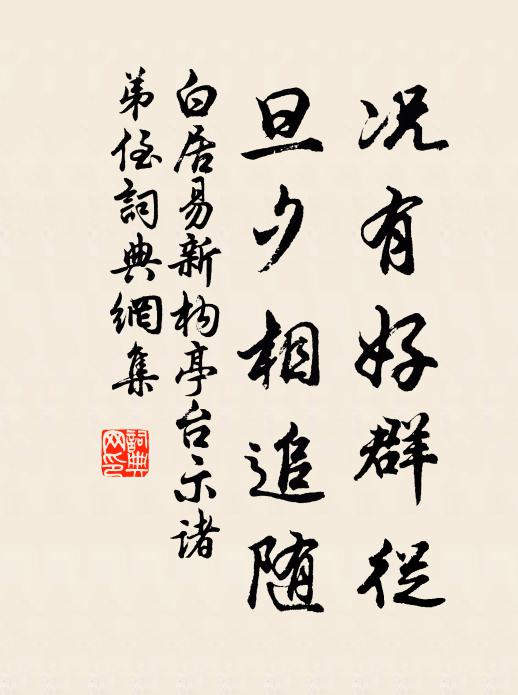 况有好群從
旦夕相追随
白居易新构亭台示诸
弟侄詞典網集
詞典
网印